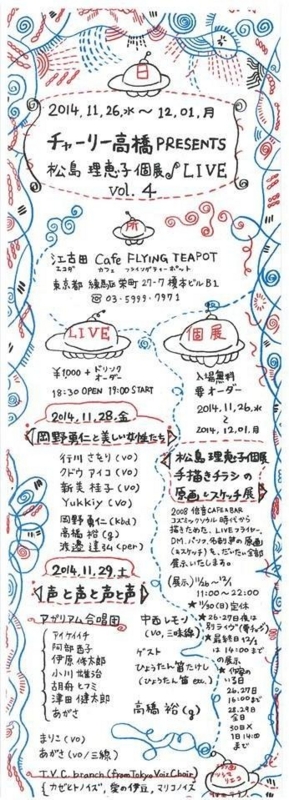 日
2014.11.26.水〜12.01.月
チャーリー高橋 PRESENTS
松島 理恵子 個展 LIVE
vol. 4
所
江古田 Cafe FLYING TEAPOT
エコダ カフェ フライングティーポット
東京都 練馬区 栄町 27-7 榎本ビル B1
☎ 03-5999-7971
LIVE
¥1000 + ドリンク
オーダー
18:30 OPEN 19:00 START
2014.11.28.金
岡野勇仁と美しい女性たち
行川 さをり (vo)
クドウ アイコ (vo)
新美 桂子 (vo)
Yukkiy (vo)
岡野 勇仁 (kbd)
高橋 裕 (g)
渡邉 達弘 (per)
2014.11.29.土
声と声と声と声
アガリアム合唱団
アイケイイチ
阿部 酉子
伊原 脩太郎
小川 雄治
胡舟 ヒフミ
津田 健太郎
あがさ
まりこ (vo)
あがさ (vo/三線)
中西レモン
(vo, 三味線)
ゲスト
ひょうたん笛たけし
(ひょうたん笛 etc.)
高橋 裕 (g)
T.V.C. branch (from Tokyo Voice Choir)
個展
入場無料
要オーダー
2014.11.26.水
〜
2014.12.01.月
松島 理恵子個展
手描きチラシの
原画とスケッチ展
2008 倍音CAFE&BAR
コズミックソウル時代から
描きためた、LIVEフライヤー、
DM、
(&スケッチ)を、だいたい全部
展示いたします。
(展示) 11/26〜12/1
11:00〜22:00
*11/30(日)定休
*26・27日夜は
別ライヴ
*最終日12/1
は 14:00まで
の展示
いる日
26.27日
16:00まで
28.29日
全日
30日×
1日14:00
まで